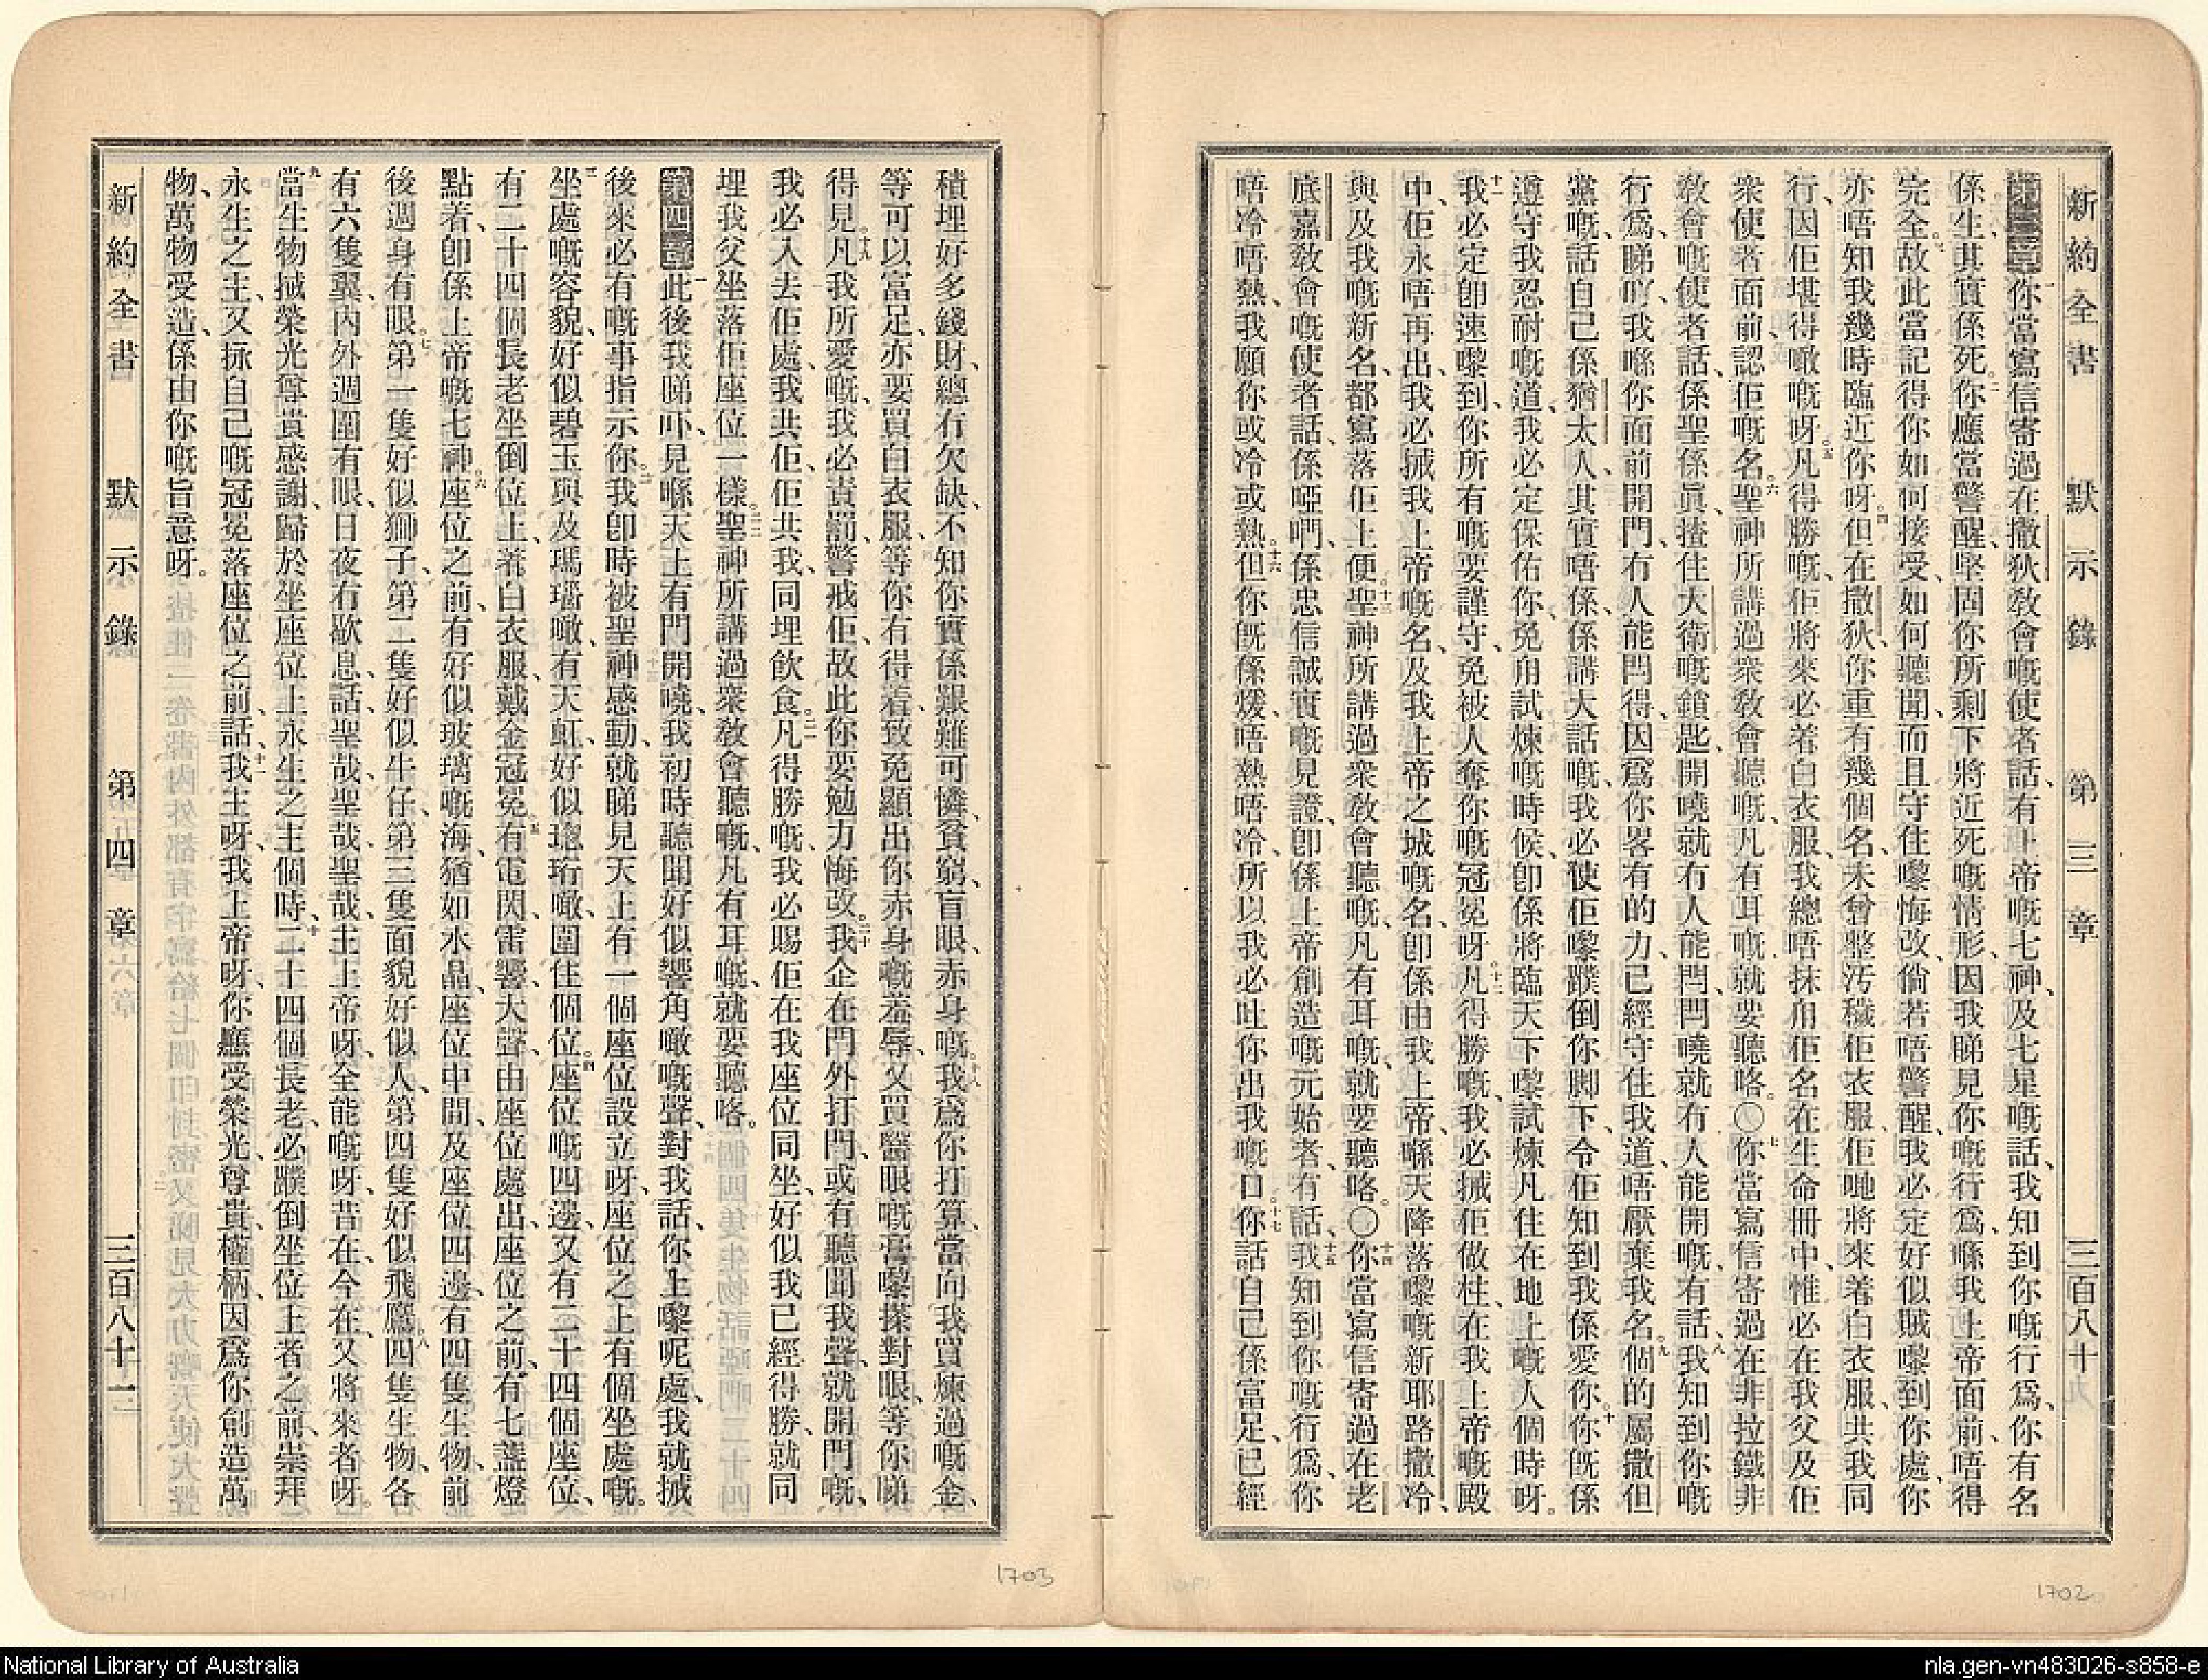 新約全書 默示錄 第三章 三百八十
第三章你當寫信寄過在撒狄教會嘅使者話、有上帝嘅七神、及七星嘅話、我知到你嘅行爲、你有名
係生、其實係死。你應當警醒、堅固你所剩下將近死嘅情形、因我睇見你嘅行爲、喺我上帝面前、唔得
完全。故此當記得你如何接受、如何聽聞、而且守住嚟悔改、倘若唔警醒、我必定好似賊嚟到你處、你
亦唔知我幾時臨近你呀。但在撒狄、你重有幾個名、未曾整汚穢佢衣服、佢哋將來着白衣服、共我同
行、因佢堪得噉嘅呀。凡得勝嘅、佢將來必着白衣服、我總唔抹甪佢名在生命冊中、惟必在我父及佢
衆使者面前、認佢嘅名。聖神所講過衆教會聽嘅、凡有耳嘅、就要聽咯。〇你當寫信寄過在非拉鐵非
教會嘅使者話、係聖係眞、揸住大衞嘅鎖匙、開嘵就冇人能閂、閂嘵就冇人能開嘅、有話、我知到你嘅
行爲、睇吖、我喺你面前開門、冇人能閂得、因爲你畧有的力、已經守住我道、唔厭棄我名。個的屬撒但
黨嘅、話自己係猶太人、其實唔係、係講大話嘅、我必使佢嚟蹼倒你脚下、令佢知到我係愛你。你旣係
遵守我忍耐嘅道、我必定保佑你、免甪試煉嘅時候、卽係將臨天下、嚟試煉凡住在地上嘅人個時呀。
我必定卽速嚟到、你所有嘅要謹守、免被人奪你嘅冠冕呀。凡得勝嘅、我必搣佢做柱、在我上帝嘅殿
中、佢永唔再出、我必搣我上帝嘅名、及我上帝之城嘅名、卽係由我上帝、喺天降落嚟嘅新耶路撒冷、
與及我嘅新名、都寫落佢上便。聖神所講過衆教會聽嘅、凡有耳嘅、就要聽咯。〇你當寫信寄過在老
底嘉教會嘅使者話、係啞㗎、係忠信誠實嘅見證、卽係上帝創造嘅元始者、有話、我知到你嘅行爲、你
唔冷唔熱、我願你或冷或熱。但你旣係煖、唔熱唔冷、所以我必吐你出我嘅口。你話自己係富足、已經
積埋好多錢財、總冇欠缺、不知你實係艱難可憐、貧窮、盲眼、赤身嘅。我爲你打算、當向我買煉過嘅金、
等可以富足、亦要買白衣服、等你有得着、致免顯出你赤身嘅羞辱、又買醫眼嘅膏嚟搽對眼、等你睇
得見。凡我所愛嘅、我必責罰、警戒佢、故此你要勉力悔改。我企在門外打門、或有聽聞我聲、就開門嘅、
我必入去佢處、我共佢、佢共我、同埋飲食。凡得勝嘅、我必賜佢在我座位同坐、好似我已經得勝、就同
埋我父坐落佢座位一樣。聖神所講過衆教會聽嘅、凡有耳嘅、就要聽咯。
第四章此後我睇吓、見喺天上有門開嘵、我初時聽聞好似響角噉嘅聲、對我話、你上嚟呢處、我就搣
後來必有嘅事指示你。我卽時被聖神感動、就睇見天上有一個座位設立呀、座位之上有個坐處嘅。
坐處嘅容貌、好似碧玉與及瑪瑙噉、有天虹、好似璁珩噉、圍住個位。座位嘅四邊、又有二十四個座位、
有二十四個長老坐倒位上、著白衣服、戴金冠冕。有電閃、雷響、大聲、由座位處出、座位之前、有七盞燈
點着、卽係上帝嘅七神。座位之前、有好似玻璃嘅海、猶如水晶、座位中間、及座位四邊、有四隻生物、前
後週身有眼。第一隻好似獅子、第二隻好似牛仔、第三隻面貌好似人、第四隻好似飛鷹。四隻生物、各
有六隻翼、內外週圍有眼、日夜冇歇息、話、聖哉、聖哉、聖哉、主上帝呀、全能嘅呀、昔在、今在、又將來者呀。
當生物搣榮光尊貴感謝、歸於坐座位上永生之主個時、二十四個長老、必蹼倒坐位上者之前、崇拜
永生之主、又捈自己嘅冠冕落座位之前、話、我主呀、我上帝呀、你應受榮光、尊貴、權柄、因爲你創造萬
物、萬物受造、係由你嘅旨意呀。
新約全書 默示錄 第四章 三百八十一
1703
1702
National Library of Australia
nla.gen-vn483026-s858-e